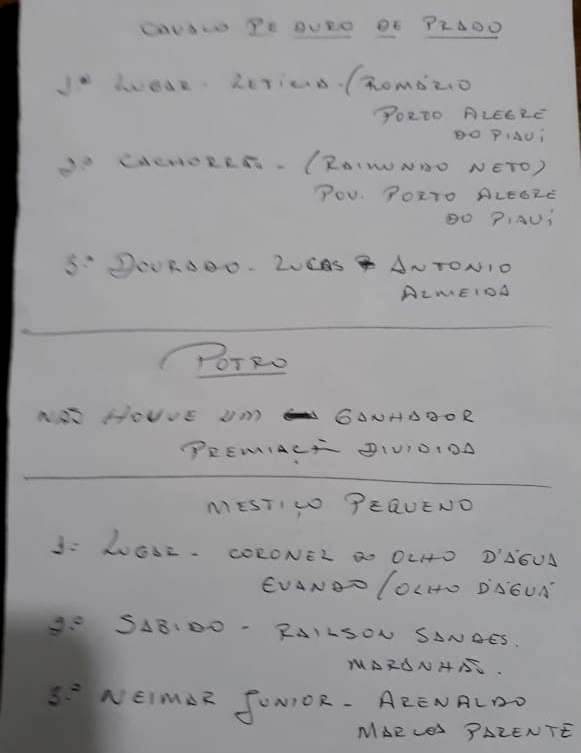 CAVALO PE DURO DE PRADO
1º LUGAR - LETICIA - (ROMÁRIO
PORTO ALEGRE
DO PIAUÍ
2º CACHORRÃO - (RAIMUNDO NETO)
POV. PORTO ALEGRE
DO PIAUÍ
3º DOURADO - LUCAS ANTONIO
ALMEIDA
POTRO
NÃO HOUVE UM GANHADOR
PREMIAÇÃ DIVIDIDA
MESTIÇO PEQUENO
1º LUGAR - CORONEL DO OLHO D'ÁGUA
EVANDO / OLHO D'ÁGUA
2º SABIDO - RAILSON SANDES.
MARANHÃO.
3º NEIMAR JUNIOR - ARENALDO
MARCOS PARENTE